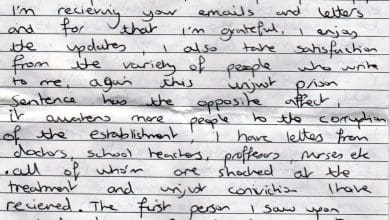 I'm recieving your emails and letters
and for that I'm grateful, I enjoy
the updates, I also take satisfaction
from the variety of people who write
to me, again this unjust prison
Sentence has the opposite affect,
it awakens more people to the corruption
of the establishment, I have letters from
doctors, school teachers, proffesors, nurses etc
.all of whom are shocked at the
treatment and unjust conviction I have
recieved. The first person I saw upon